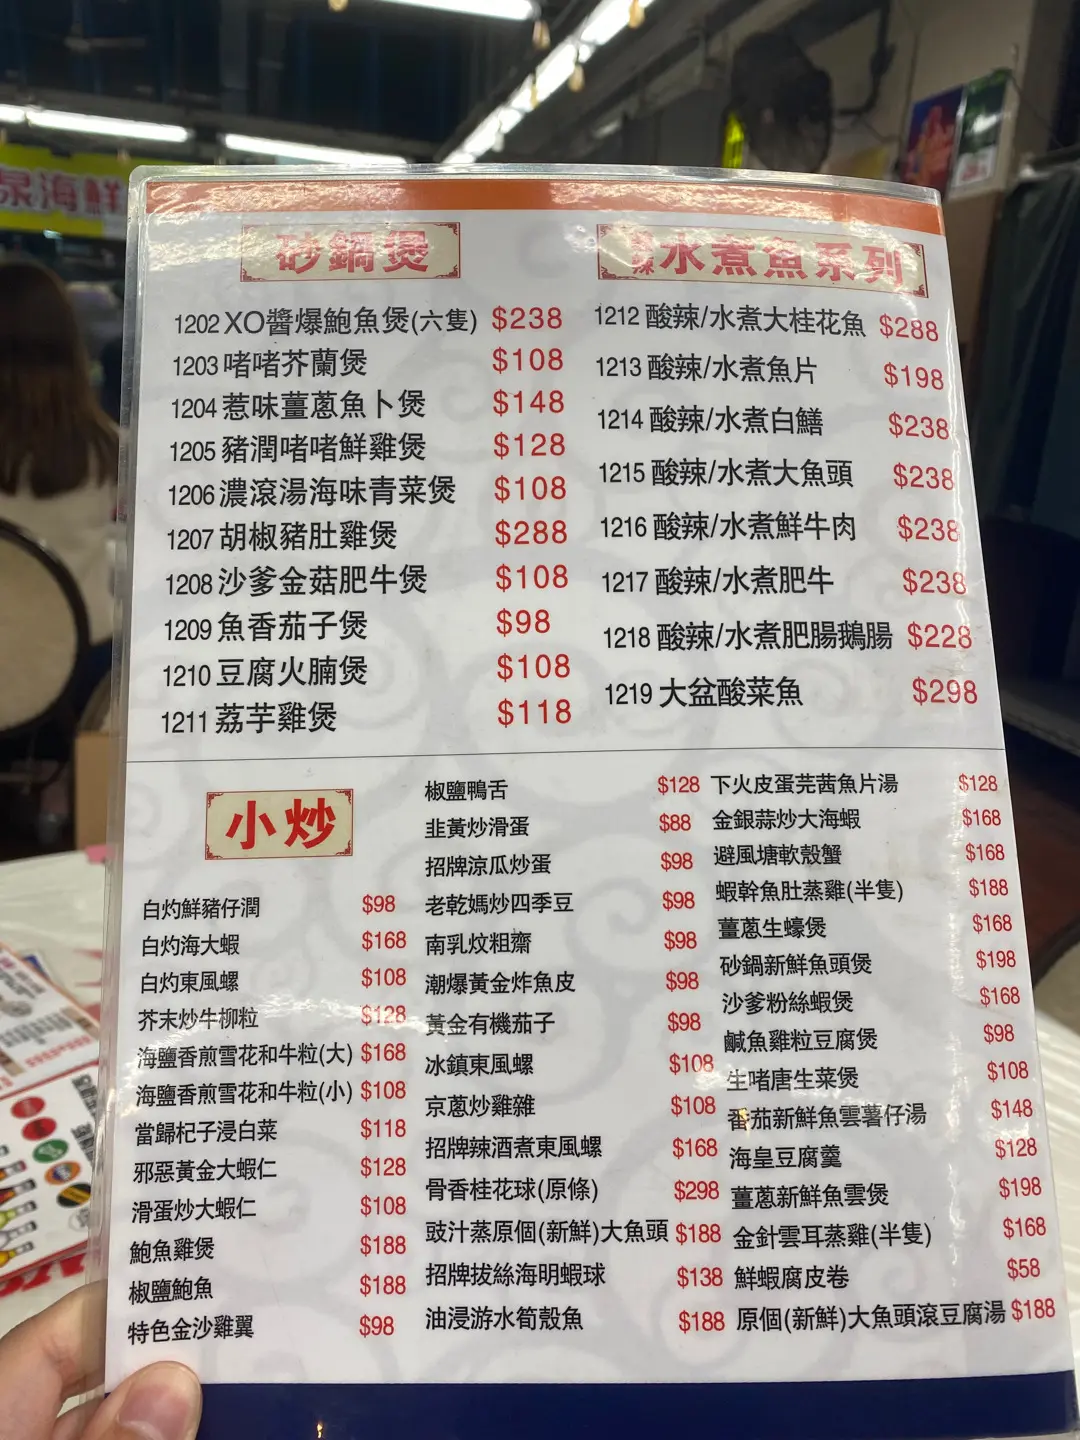 泉海鮮
砂鍋煲
1202 XO醬爆鮑魚煲(六隻) $238
1203 啫啫芥蘭煲 $108
1204 惹味薑蔥魚卜煲 $148
1205 豬潤啫啫鮮雞煲 $128
1206 濃滾湯海味青菜煲 $108
1207 胡椒豬肚雞煲 $288
1208 沙爹金菇肥牛煲 $108
1209 魚香茄子煲 $98
1210 豆腐火腩煲 $108
1211 荔芋雞煲 $118
水煮魚系列
1212 酸辣/水煮大桂花魚 $288
1213 酸辣/水煮魚片 $198
1214 酸辣/水煮白鱔 $238
1215 酸辣/水煮大魚頭 $238
1216 酸辣/水煮鮮牛肉 $238
1217 酸辣/水煮肥牛 $238
1218 酸辣/水煮肥腸鵝腸 $228
1219 大盆酸菜魚 $298
小炒
白灼鮮豬仔潤 $98
白灼海大蝦 $168
白灼東風螺 $108
芥末炒牛柳粒 $128
海鹽香煎雪花和牛粒(大) $168
海鹽香煎雪花和牛粒(小) $108
當歸杞子浸白菜 $118
邪惡黃金大蝦仁 $128
滑蛋炒大蝦仁 $108
鮑魚雞煲 $188
椒鹽鮑魚 $188
特色金沙雞翼 $98
椒鹽鴨舌 $128
韭黃炒滑蛋 $88
招牌涼瓜炒蛋 $98
老乾媽炒四季豆 $98
南乳炆粗齋 $98
潮爆黃金炸魚皮 $98
黃金有機茄子 $98
冰鎮東風螺 $108
京蔥炒雞雜 $108
招牌辣酒煮東風螺 $168
骨香桂花球(原條) $298
豉汁蒸原個(新鮮)大魚頭 $188
招牌拔絲海明蝦球 $138
油浸游水筍殼魚 $188
下火皮蛋芫茜魚片湯 $128
金銀蒜炒大海蝦 $168
避風塘軟殼蟹 $168
蝦幹魚肚蒸雞(半隻) $188
薑蔥生蠔煲 $168
砂鍋新鮮魚頭煲 $198
沙爹粉絲蝦煲 $168
鹹魚雞粒豆腐煲 $98
生啫唐生菜煲 $108
番茄新鮮魚雲薯仔湯 $148
海皇豆腐羹 $128
薑蔥新鮮魚雲煲 $198
金針雲耳蒸雞(半隻) $168
鮮蝦腐皮卷 $58
原個(新鮮)大魚頭滾豆腐湯 $188